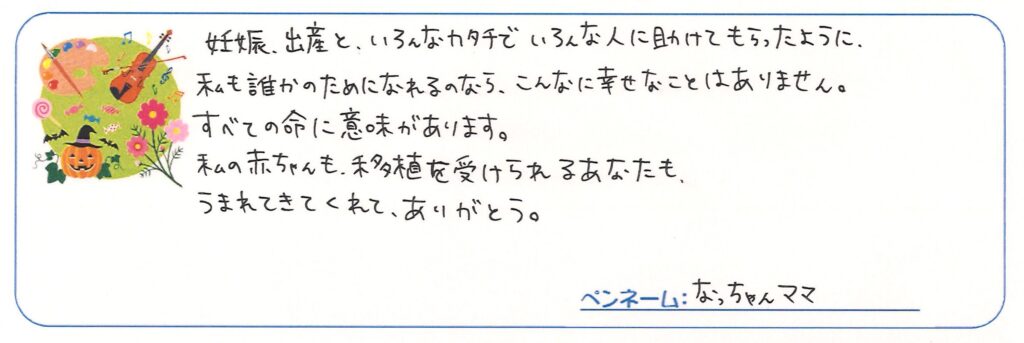 妊娠、出産と、いろんなカタチで いろんな人に助けてもらったように、
私も誰かのためになれるのなら、こんなに幸せなことはありません。
すべての命に意味があります。
私の赤ちゃんも、移植を受けられるあなたも、
うまれてきてくれて、ありがとう。
ペンネーム：なっちゃんママ